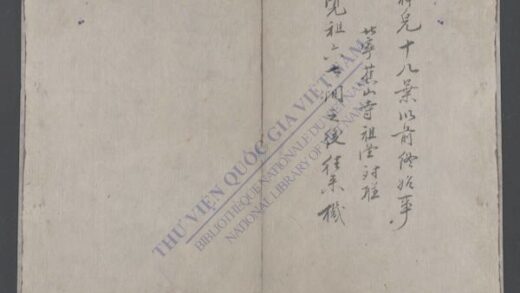 兄十八葉以前修始事
北寧蕉山寺祖堂対聯
祖六七間之後往来機
THƯ VIỆN QUỐC GIA VIỆT NAM
BIBLIOTHÈQUE NATIONALE DU VIETNAM
NATIONAL LIBRARY OF VIETNAM